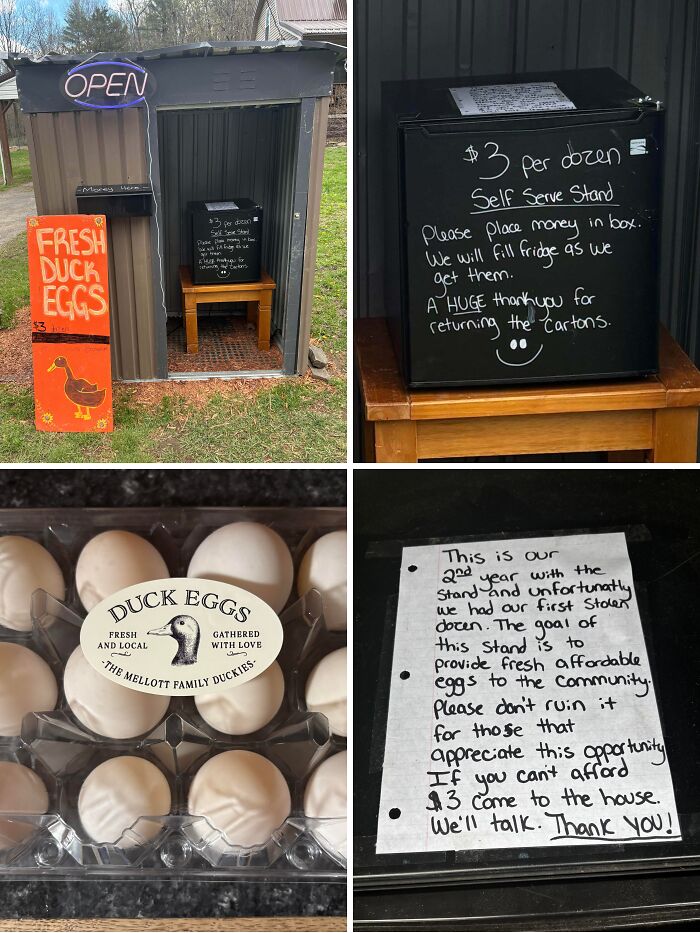 OPEN
Money Here
FRESH
DUCK
EGGS
$3
$3 per dozen
Self Serve Stand
Please place money in box.
We will fill fridge as we
get them.
A HUGE thankyou for
returning the cartons.
$3 per dozen
Self Serve Stand
Please place money in box.
We will fill fridge as we
get them.
A HUGE thankyou for
returning the cartons.
DUCK EGGS
FRESH
AND LOCAL
GATHERED
WITH LOVE
-THE MELLOTT FAMILY DUCKIES-
This is our
2nd year with the
stand and unfortunatly
we had our first stolen
dozen. The goal of
this stand is to
provide fresh affordable
eggs to the community.
Please don't ruin it
for those that
appreciate this opportunity
If you can't afford
$3 come to the house.
We'll talk. Thank you!